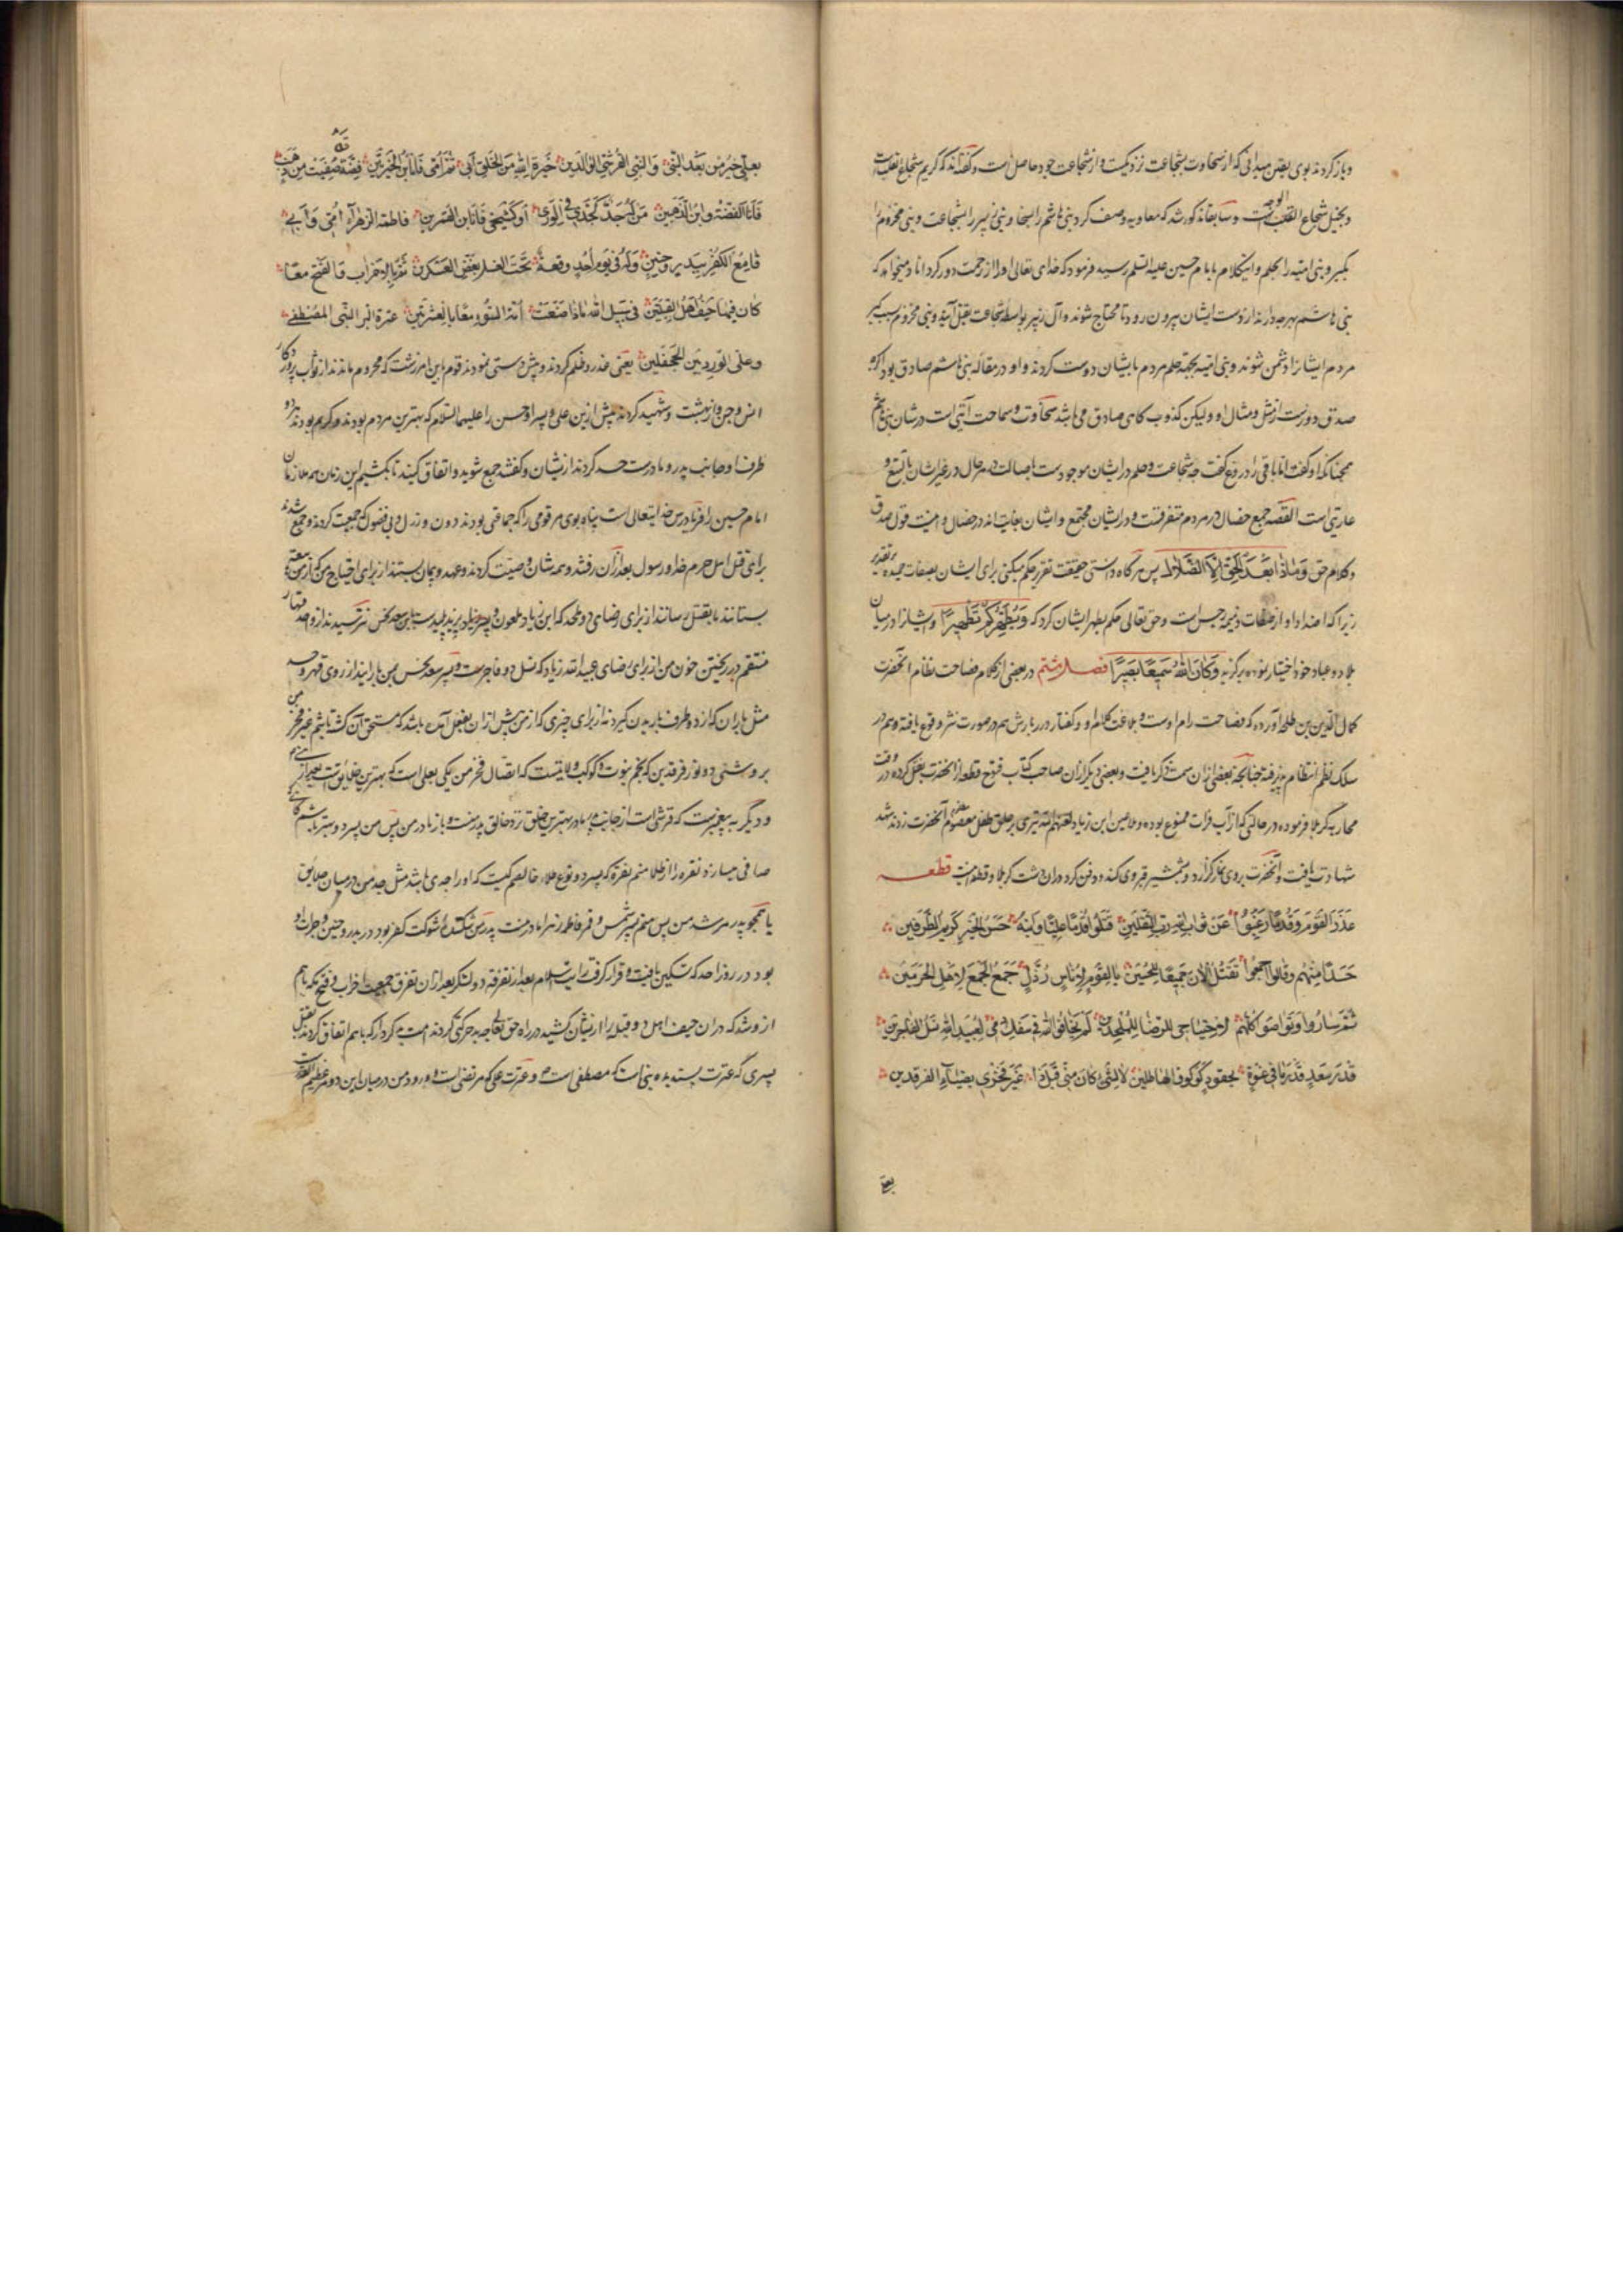 و باز کردند بوی یقین میدانی که از سخاوت بشجاعت نزدیکست و از شجاعت جود حاصل است و گفته‌اند که کریم شجاع القلبست
و بخیل شجاع الوجه و سابقا مذکور شد که معاویه وصف کرد بنی هاشم را بسخا و بنی زبیر را بشجاعت و بنی مخزوم را
بکبر و بنی امیه را بحلم و این کلام بامام حسین علیه السلم رسید فرمود که خدای تعالی او را از رحمت دور گرداناد میخواهد که
بنی هاشم هر چه دارند از دست ایشان بیرون رود تا محتاج شوند و آل زبیر بواسطه شجاعت بقتل آیند و بنی مخزوم بسبب کبر
مردم ایشانرا دشمن شوند و بنی امیه بجهة حلم مردم بایشان دوست کردند و او در مقاله بنی هاشم صادق بود اگرچه
صدق دورست از مثل و مثال او ولیکن کذوب گاهی صادق می باشد سخاوت و سماحت آیتی است در شان بنی هاشم
همچنانکه او گفت اما باقی را دروغ گفت چه شجاعت و حلم در ایشان موجودست باصالت در هر حال و در غیر ایشان بالتبع و
عاریتی است القصه جمیع خصال در مردم متفرقست و در ایشان مجتمع و ایشان بغایت‌اند در خصال و اینست قول صدق
و کلام حق وَمَاذَا بَعْدَ الْحَقِّ إِلَّا الضَّلَالُ پس هرگاه دانستی حقیقت تقریر حکم میکنی برای ایشان بصفات حمیده بر تقدیر
زیرا که اضداد او از صفات ذمیمه رجس است و حق تعالی حکم بطهر ایشان کرد که وَيُطَهِّرَكُمْ تَطْهِيرًا و ایشانرا در میان
بلاد و عباد خود اختیار نموده برگزید وَكَانَ اللَّهُ سَمِيعًا بَصِيرًا فصل هشتم در بعضی از کلام فصاحت نظام آنحضرت
کمال الدین بن طلحه آورده که فصاحت رام اوست و بلاغت کلام او و گفتار در ربارش هم در صورت نثر وقوع یافته و هم در
سلک نظم انتظام پذیرفته چنانچه بعضی از آن سمت ذکر یافت و بعضی دیگر از آن صاحب کتاب فتوح قطعه از آنحضرت نقل کرده که در وقت
محاربه کربلا فرموده در حالتی که از آب فرات ممنوع بوده و ملاعین ابن زیاد لعنهم الله تیری بر حلق طفل معصوم آنحضرت زدند شد
شهادت یافت و آنحضرت بروی نماز گزارد و بشمشیر قبر وی کند و دفن کرد در آن دشت کربلا و قطعه اینست قطعه
غَدَرَ القَوْمُ وَقِدْمًا رَغِبُوا عَنْ ثَوَابِ اللهِ رَبِّ الثَّقَلَيْنِ قَتَلُوا قِدْمًا عَلِيًّا وَابْنَهُ حَسَنَ الخَيْرِ كَرِيمَ الطَّرَفَيْنِ
حَسَدًا مِنْهُمْ وَقَالُوا أَجْمِعُوا نَقْتُلُ الآنَ جَمِيعًا لِلْحُسَيْنِ يَا لَقَوْمٍ لِأُنَاسٍ رُذَّلٍ جَمَعُوا الجَمْعَ لِأَهْلِ الحَرَمَيْنِ
ثُمَّ سَارُوا وَتَوَاصَوْا كُلُّهُمْ لاجْتِيَاحِي لِلرِّضَا لِلْمُلْحِدَيْنِ لَمْ يَخَافُوا اللهَ فِي سَفْكِ دَمِي لِعُبَيْدِ اللهِ نَسْلِ الفَاجِرَيْنِ
وَابْنُ سَعْدٍ قَدْ رَمَانِي عَنْوَةً بِجُنُودٍ كَوُكُوفِ الهَاطِلَيْنِ لَا لِشَيْءٍ كَانَ مِنِّي قَبْلَ ذَا غَيْرَ فَخْرِي بِضِيَاءِ الفَرْقَدَيْنِ
بعلی
بِعَلِيٍّ خَيْرِ مَنْ بَعْدَ النَّبِيِّ وَالنَّبِيِّ القُرَشِيِّ الوَالِدَيْنِ خِيَرَةُ اللهِ مِنَ الخَلْقِ أَبِي ثُمَّ أُمِّي فَأَنَا ابْنُ الخَيْرَتَيْنِ فِضَّةٌ قَدْ صُفِيَتْ مِنْ ذَهَبٍ
فَأَنَا الفِضَّةُ وَابْنُ الذَّهَبَيْنِ مَنْ لَهُ جَدٌّ كَجَدِّي فِي الوَرَى أَوْ كَشَيْخِي فَأَنَا ابْنُ القَمَرَيْنِ فَاطِمَةُ الزَّهْرَاءُ أُمِّي وَأَبِي
قَامِعُ الكُفْرِ بِبَدْرٍ وَحُنَيْنِ وَلَهُ فِي يَوْمِ أُحُدٍ وَقْعَةٌ شَفَتِ الغِلَّ بِفَضِّ العَسْكَرَيْنِ ثُمَّ بِالأَحْزَابِ وَالفَتْحِ مَعًا
كَانَ فِيهَا حَتْفُ أَهْلِ القِبْلَتَيْنِ فِي سَبِيلِ اللهِ مَاذَا صَنَعَتْ أُمَّةُ السُّوءِ مَعًا بِالعِتْرَتَيْنِ عِتْرَةِ البَرِّ النَّبِيِّ المُصْطَفَى
وَعَلِيِّ الوَرْدِ بَيْنَ الجَحْفَلَيْنِ یعنی غدر و ظلم کردند و پیش دستی نمودند قوم باین امر زشت که محروم ماندند از ثواب پروردگار
انس و جن و از بهشت و شهید کردند پیش ازین علی و پسر او حسن را علیهما السلام که بهترین مردم بودند و کریم بودند هر دو
طرف او جانب پدر و مادرست حسد کردند از ایشان و گفتند جمع شوید و اتفاق کنید تا بکشیم این زمان همه ملازمان
امام حسین را فریادرس خدایتعالی است پناه بوی مر قومی را که جماعتی بودند دون و رذل و بی فضول که جمعیت کردند و جمع شدند
برای قتل اهل حرم خدا و رسول بعد از آن رفتند و همه شان وصیت کردند و عهد و پیمان بستند از برای اجتیاح من که از من
بستانند یا بقتل رسانند از برای رضای دو ملحد که ابن زیاد ملعون و یزید پلیدست نترسیدند از واحد قهار
منتقم در ریختن خون من از برای رضای عبید الله زیاد که نسل دو فاجرست و پسر سعد نحس بمن بارانید از روی قهر و
مثل باران که از دو طرف باریدن گیرد نه از برای چیزی که از من پیش ازان بفعل آمده باشد که مستحق آن گشته باشم غیر فخر من
بروشنی دو نور فرقدین که نجم نبوت و کوکب ولایتست که اتصال فخر من یکی بعلی است که بهترین خلایقست بعد از نبی
و دیگر به پیغمبرست که قرشی است از جانب پدر و مادر بهترین خلق نزد خالق پدر منست و باز مادر من پس من پسر دو بهتر باشم
صافی میسازند نقره را از طلا منم نقره که پسر دو نوع طلاء خالصم کیست که او را جدی باشد مثل جد من در میان خلایق
یا همچو پدر مرشد من پس منم پسر شمس و قمر فاطمه زهرا مادر منست پدر من شکننده شوکت کفر بود در بدر و حنین و جرات او
بود در روز احد که تسکین یافت و قرار گرفت رایت اسلام بعد از تفرقه دو لشکر بعد ازان تفرق جمعیت احزاب و فتح مکه باهم
ازو شد که دران حیف اهل دو قبله را از ایشان کشید در راه حق تعالی چه حرکتی کردند امت بد کردار که باهم اتفاق کردند بقتل
پسری که عترت پسندیده نبی است که مصطفی است و عترت علی که مرتضی است و ورود من در میان این دو عظیم